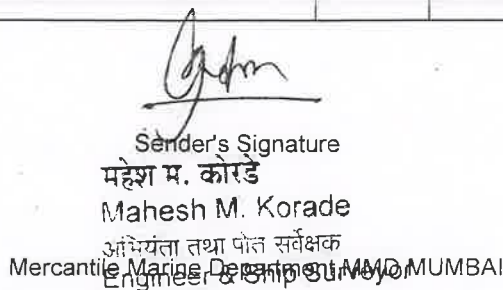 Sender's Signature
महेश म. कोरडे
Mahesh M. Korade
अभियंता तथा पोत सर्वेक्षक
Engineer & Ship Surveyor
Mercantile Marine Department MMD MUMBAI